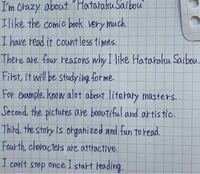 I'm crazy about "Hataraku Saibou"
I like the comic book very much.
I have read it countless times.
There are four reasons why I like Hataraku Saibou.
First, it will be studying for me.
For example, know alot about literary masters.
Second, the pictures are beautiful and artistic.
Third, the story is organized and fun to read.
Fourth, characters are attractive.
I can't stop once I start reading.